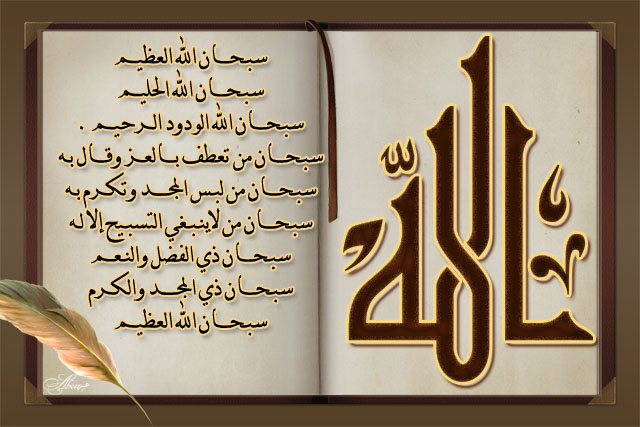 سبحان الله العظيم
سبحان الله الحليم
سبحان الله الودود الرحيم .
سبحان من تعطف بالعز وقال به
سبحان من لبس المجد وتكرم به
سبحان من لاينبغي التسبيح إلا له
سبحان ذي الفضل والنعم
سبحان ذي المجد والكرم
سبحان الله العظيم
الله